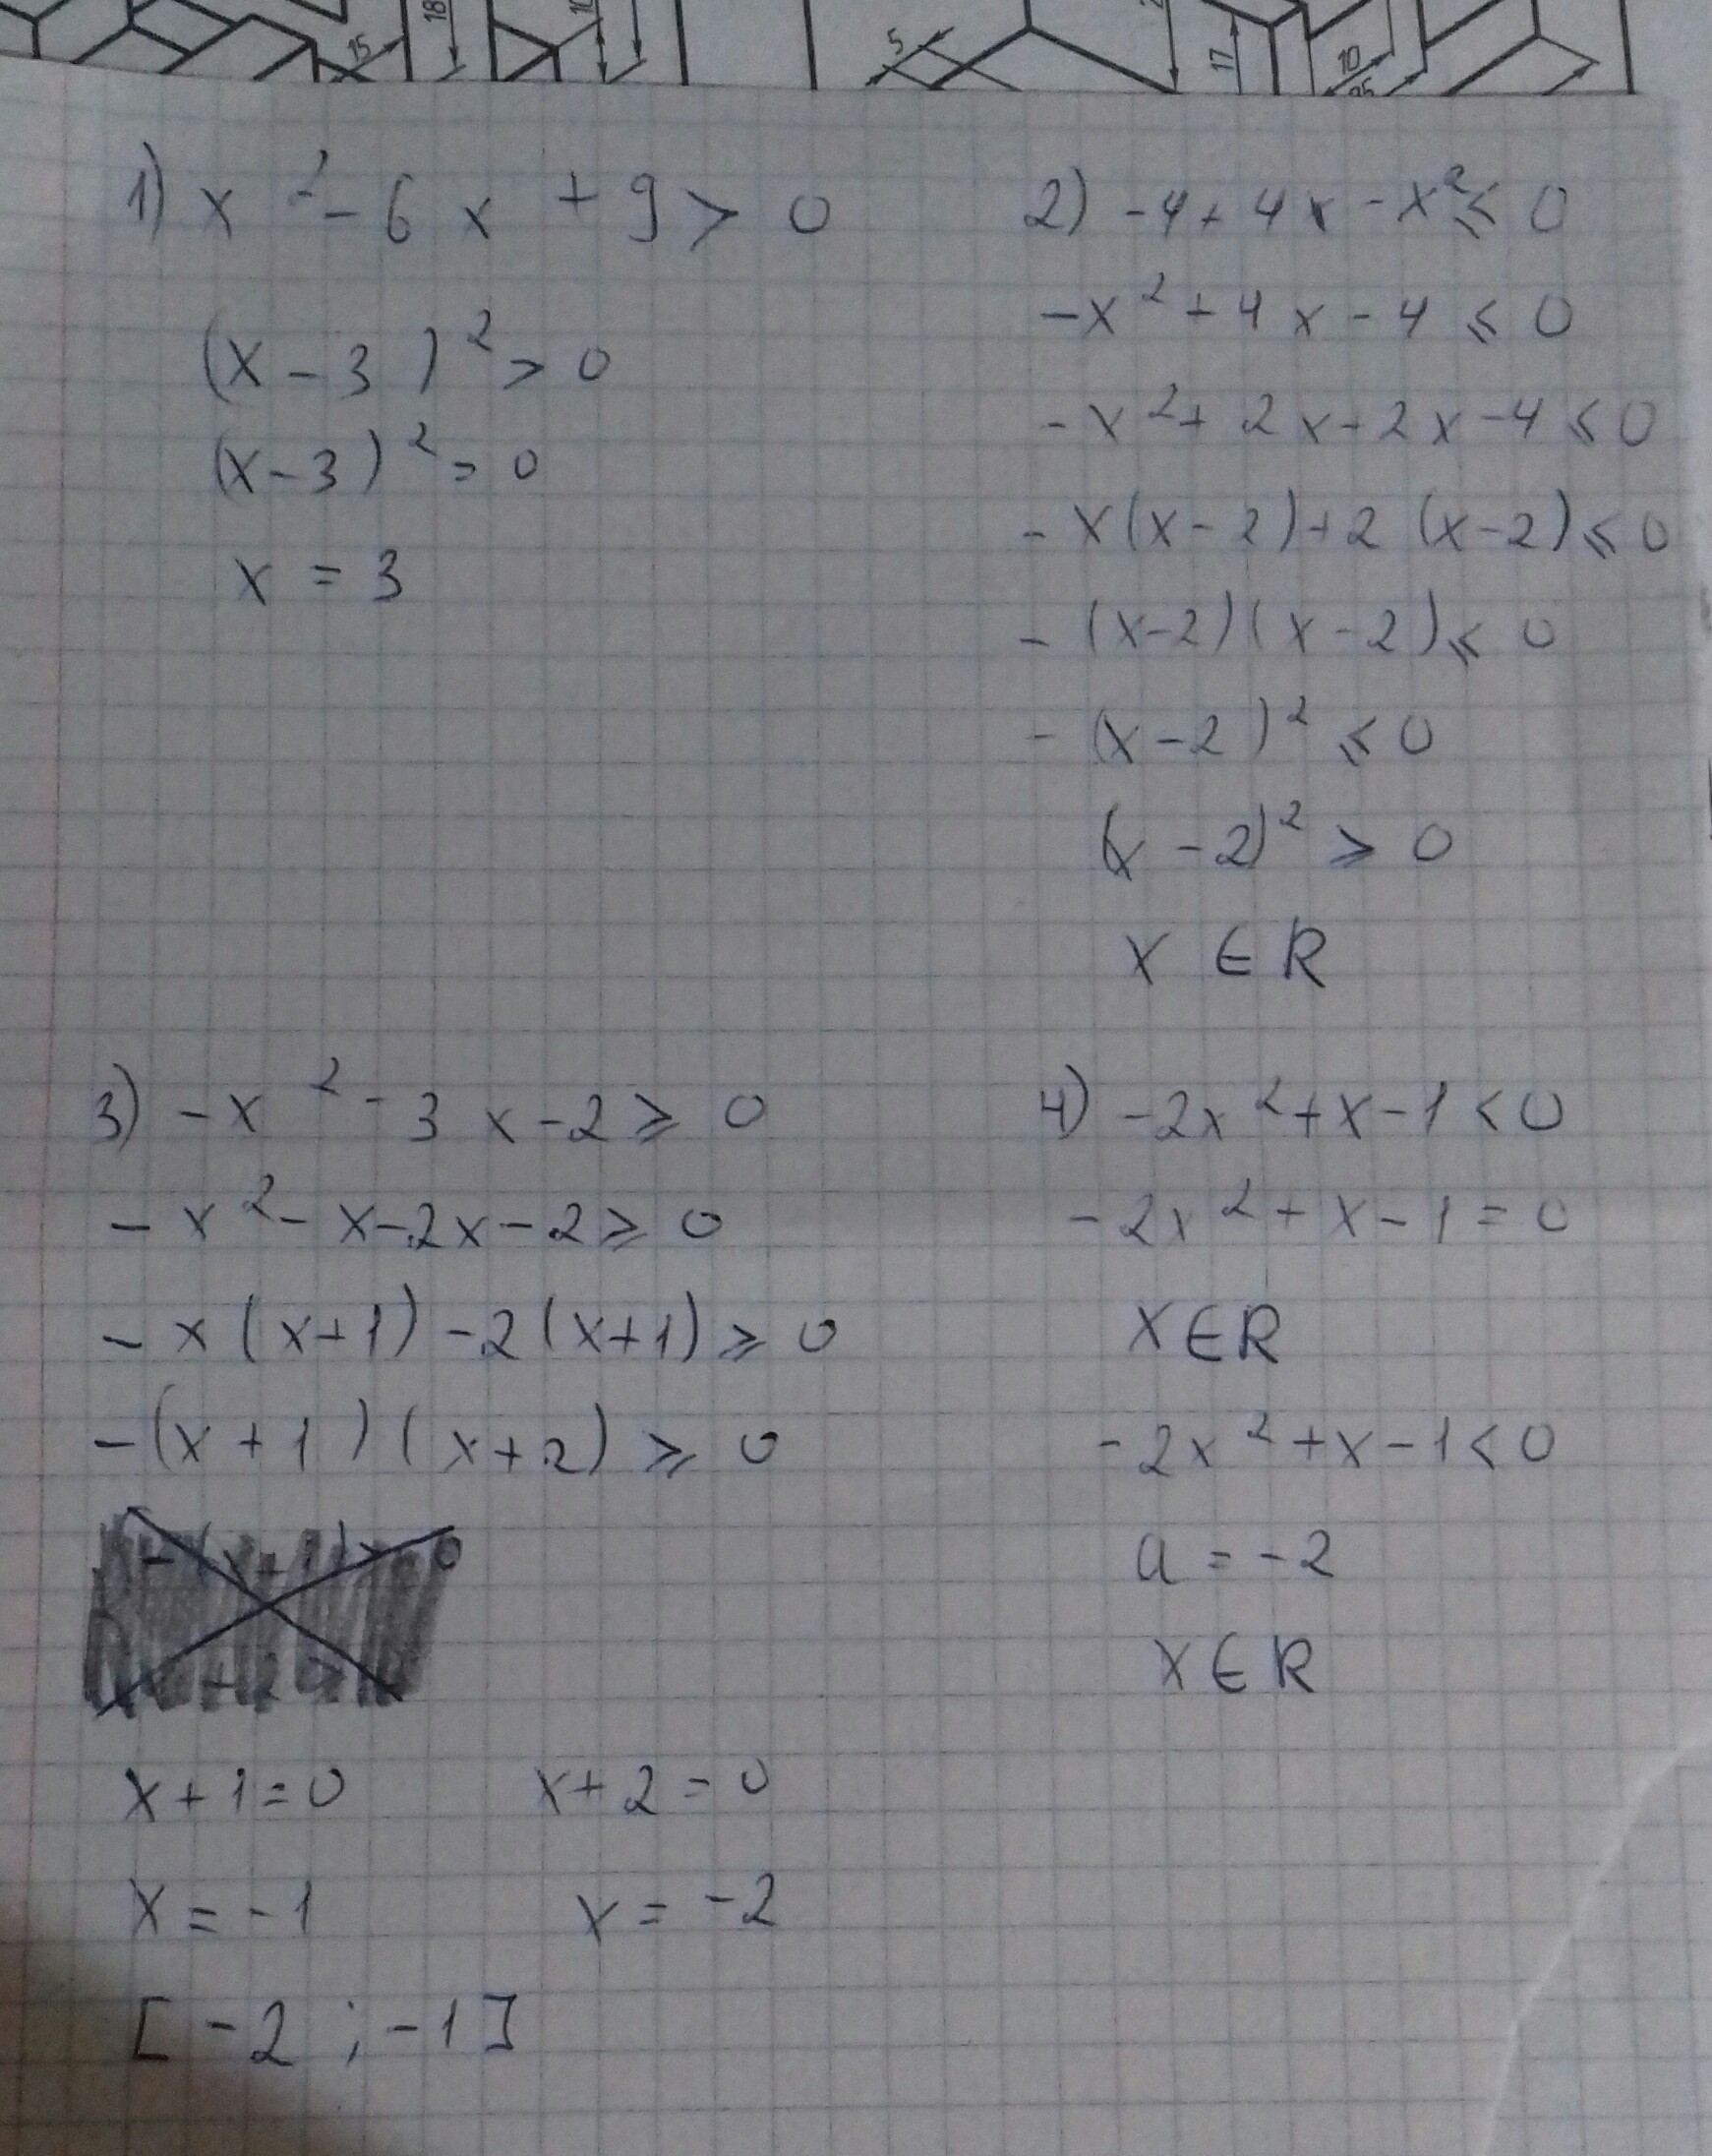 15
18
10
5
17
10
25
1) x² - 6x + 9 > 0
(x - 3)² > 0
(x - 3)² = 0
x = 3
2) -4 + 4x - x² ≤ 0
-x² + 4x - 4 ≤ 0
-x² + 2x + 2x - 4 ≤ 0
-x(x - 2) + 2(x - 2) ≤ 0
-(x - 2)(x - 2) ≤ 0
-(x - 2)² ≤ 0
(x - 2)² ≥ 0
x ∈ R
3) -x² - 3x - 2 ≥ 0
-x² - x - 2x - 2 ≥ 0
-x(x + 1) - 2(x + 1) ≥ 0
-(x + 1)(x + 2) ≥ 0
x + 1 = 0 x + 2 = 0
x = -1 x = -2
[-2 ; -1]
4) -2x² + x - 1 < 0
-2x² + x - 1 = 0
x ∈ R
-2x² + x - 1 < 0
a = -2
x ∈ R